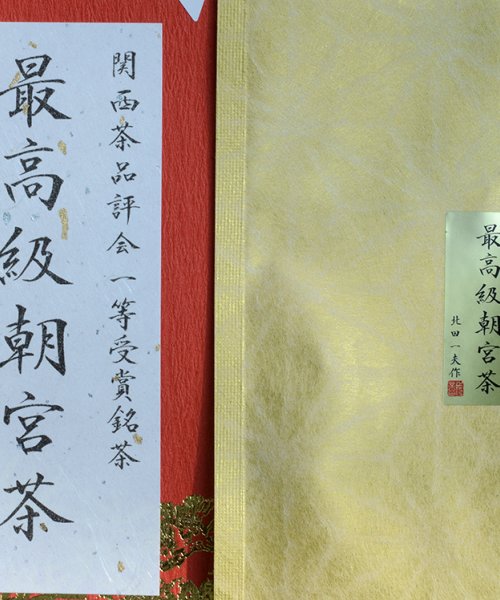 関西茶品評会一等受賞銘茶
最高級朝宮茶
最高級朝宮茶
北田一夫作